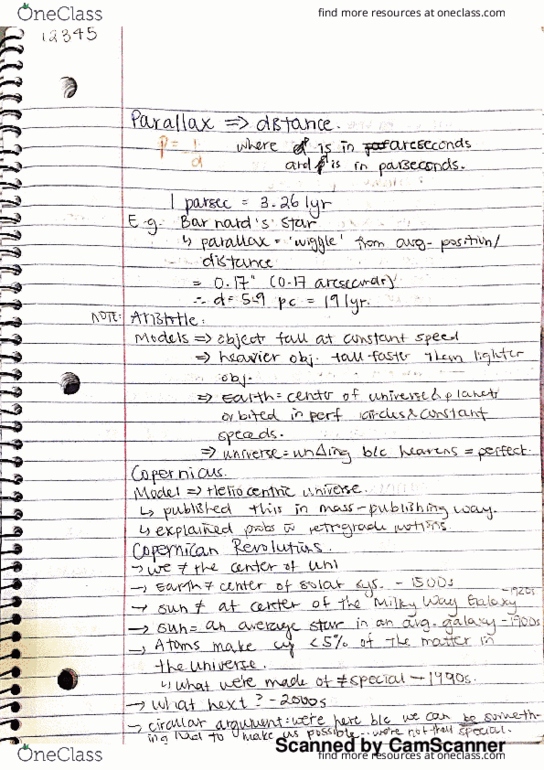 OneClass
find more resources at oneclass.com
12345
Parallax => distance.
p = 1/d where d is in arcseconds
and p is in parseconds.
1 parsec = 3.26 lyr
E.g. Barnard's star
↳ parallax = 'wiggle' from avg. position/
distance
= 0.17" (0.17 arcseconds)
∴ d = 5.9 pc = 19 lyr.
NOTE: Aristotle:
Models => object fall at constant speed
=> heavier obj. fall faster than lighter
obj.
=> Earth = center of universe & planets
orbited in perf circles & constant
speeds.
=> universe = unΔing b/c heavens = perfect.
Copernicus.
Model => Heliocentric universe.
↳ published this in mass-publishing way.
↳ explained probs w retrograde motions.
Copernican Revolutions.
→ we ≠ the center of uni
→ Earth ≠ center of solar sys. - 1500s
→ sun ≠ at center of the Milky Way Galaxy - 1920s
→ sun = an average star in an avg. galaxy - 1900s
→ Atoms make up <5% of the matter in
the universe.
↳ what we're made of ≠ special - 1990s.
→ what next? - 2000s
→ circular argument: we're here b/c we can be someth-
ing had to make us possible. we're not that special.
OneClass
Scanned by CamScanner
find more resources at oneclass.com